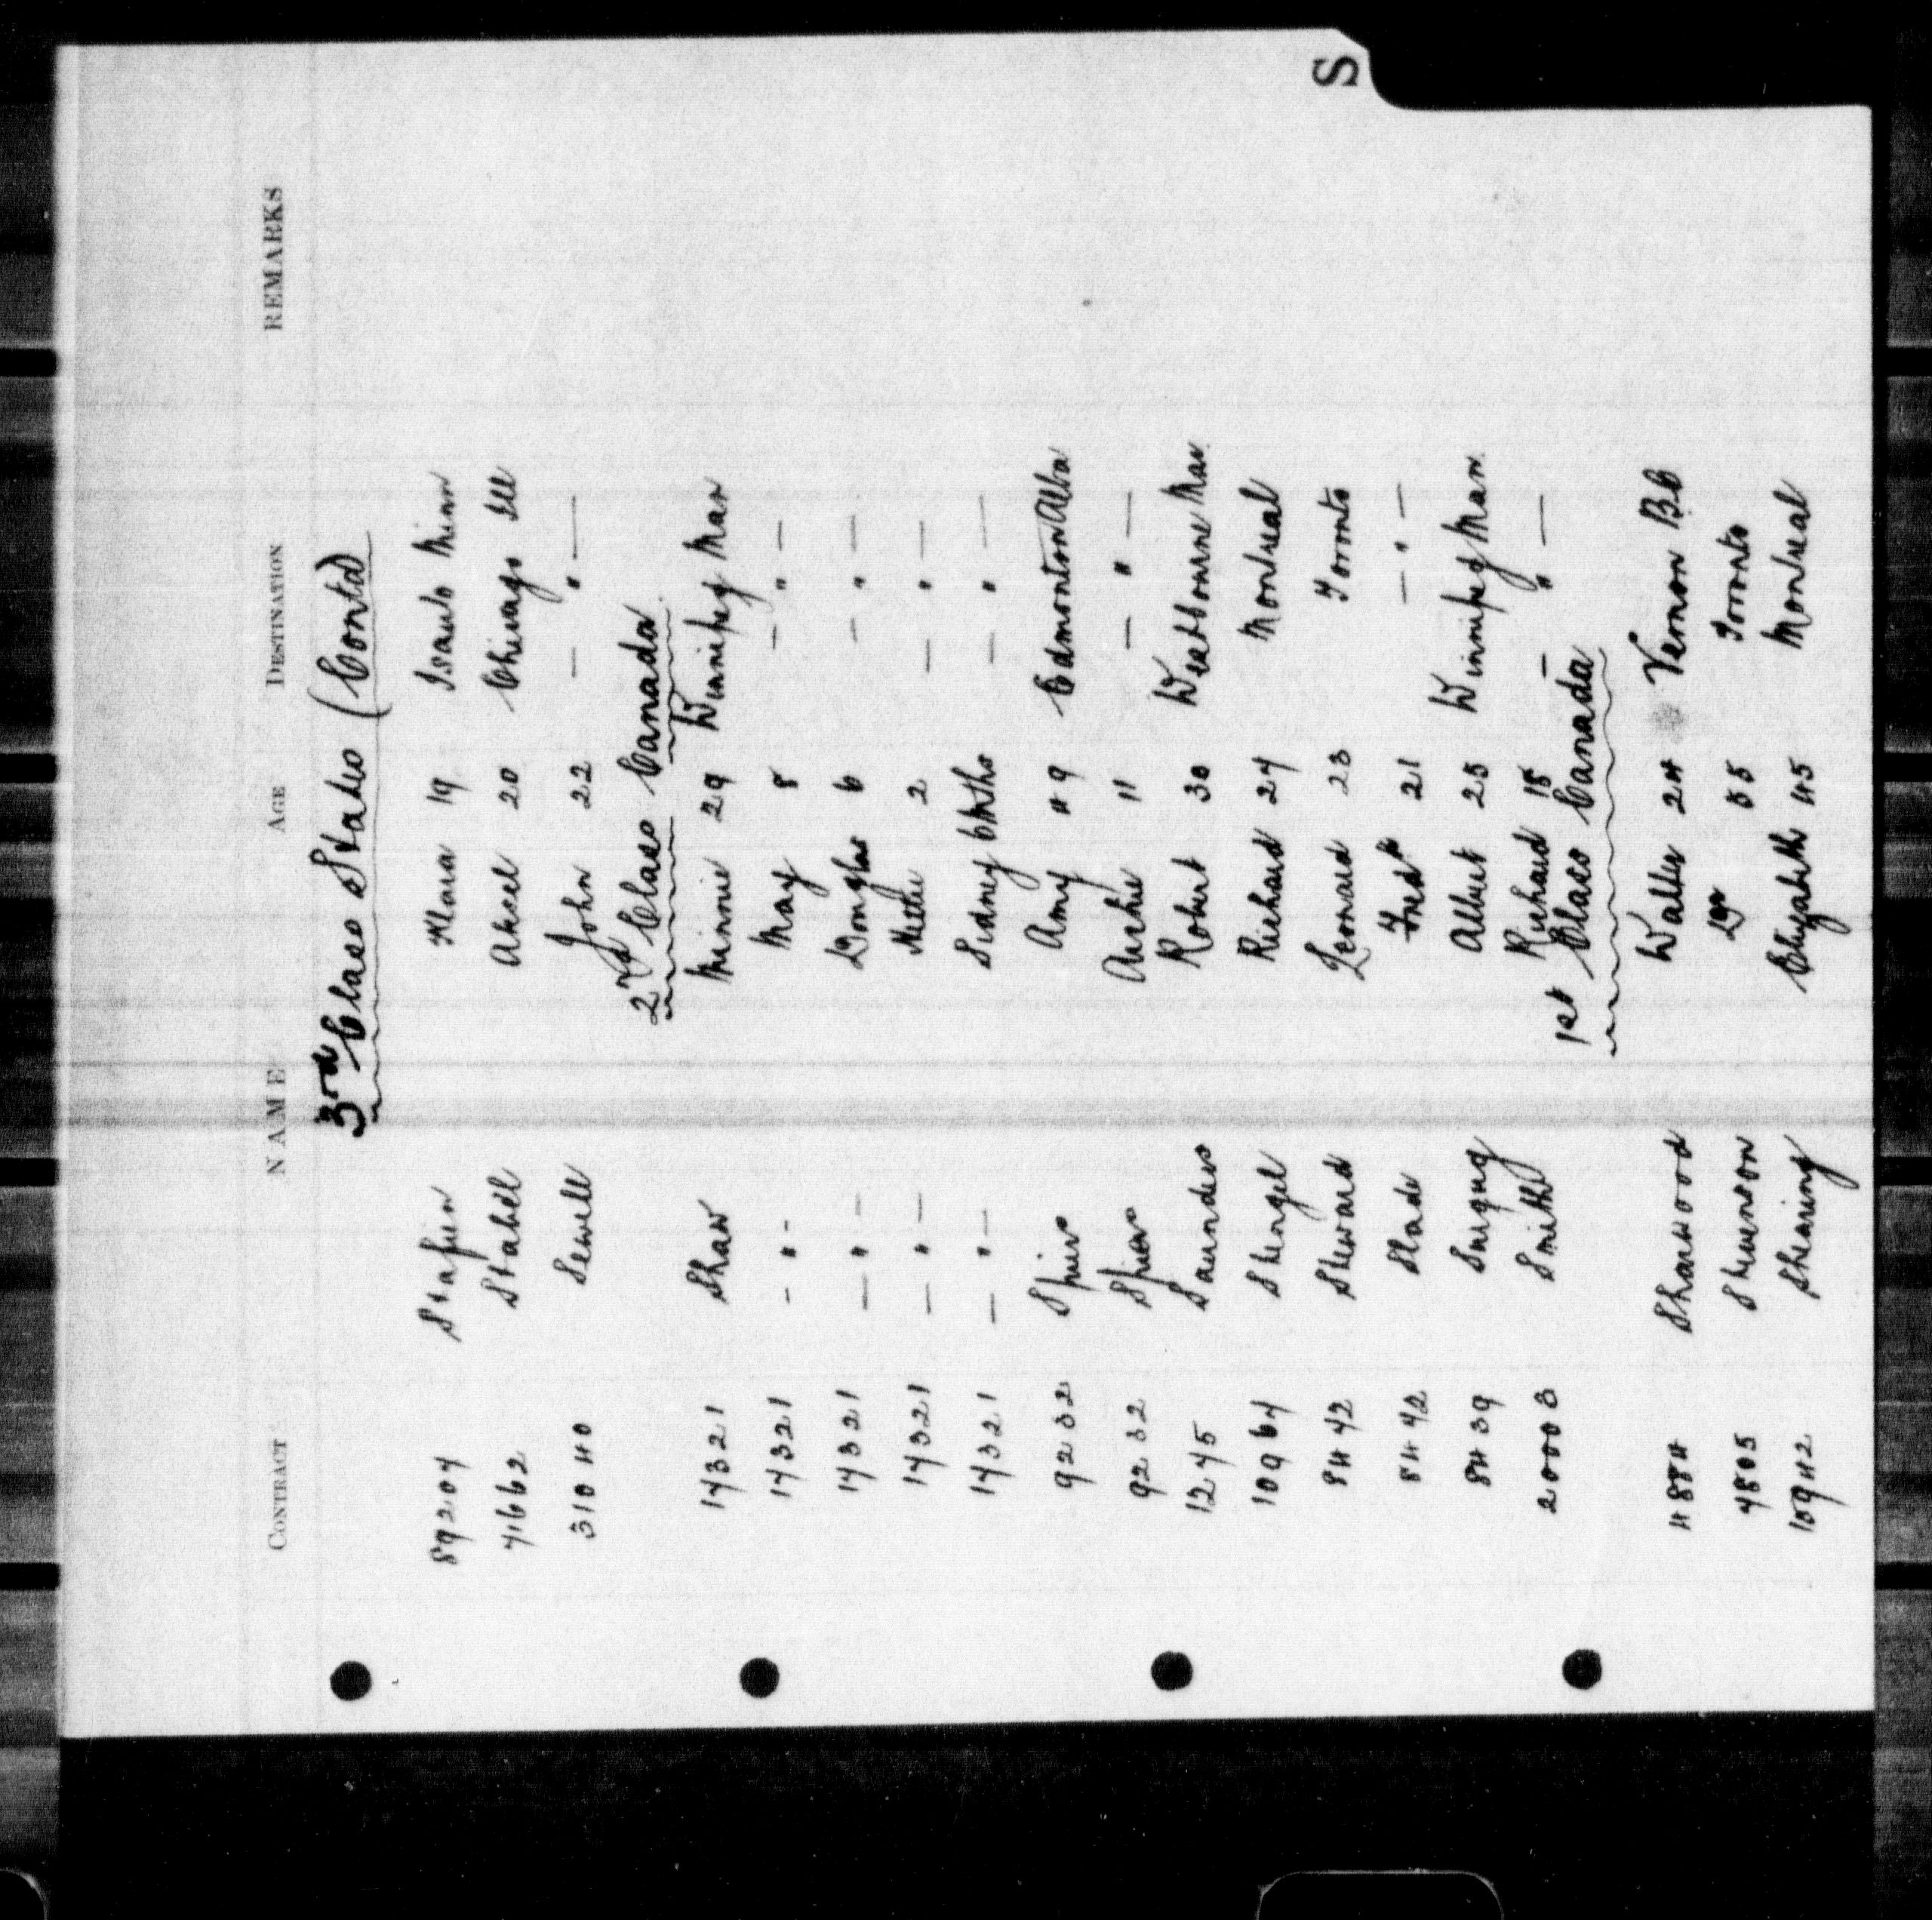 S
CONTRACT NAME AGE DESTINATION REMARKS
3rd Class States (Contd)
89204 Klara 19 Minn
71662 Stabell Aksel 20 Chicago Ill
31040 Sewell John 22 — " —
2nd Class Canada
17321 Shaw Minnie 29 Winnipeg Man
17321 - " - May 8 — " —
17321 — " — Douglas 6 — " —
17321 — " — 2 — " —
17321 — " — Sidney 6 Mths — " —
9232 Spiers Amy 49 Edmonton Alba
9232 Spiers Archie 11 — " —
1275 Saunders Robert 30 Westbourne Man
10967 Richard 27 Montreal
8442 Steward Leonard 23 Toronto
8442 Slade Fredk 21 — " —
8439 Albert 25 Winnipeg Man
20003 Smith Richard 18 — " —
1st Class Canada
4884 Sharwood Walter 24 Vernon B.C
4805 Stevenson Dr 55 Toronto
10942 Shearing Elizabeth 45 Montreal